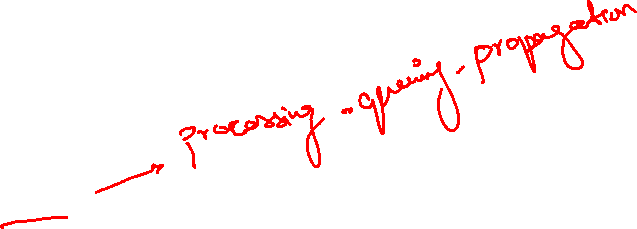 → processing - queuing - propagation